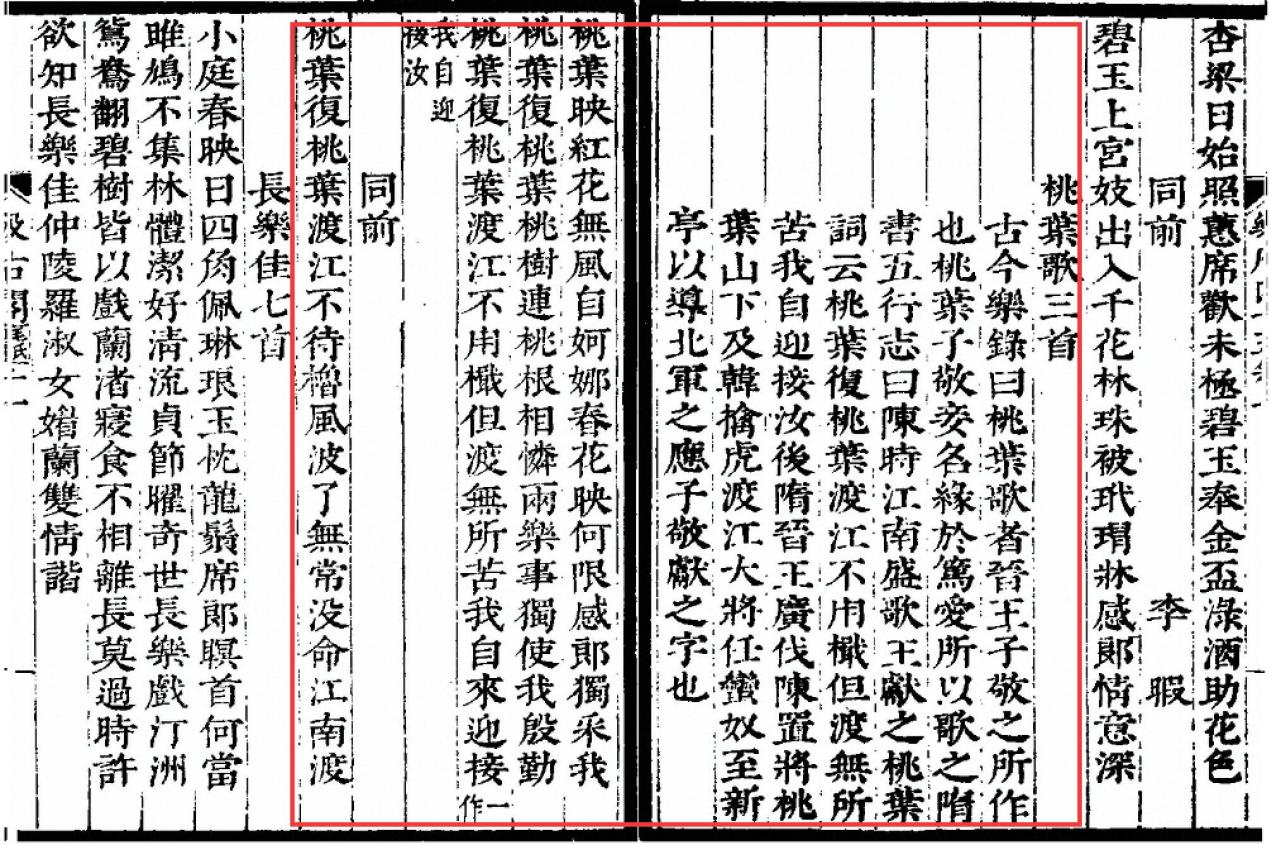 杏梁日始照蕙席歡未極碧玉奉金盃淥酒助花色
同前 李暇
碧玉上宮妓出入千花林珠被玳瑁牀感郎情意深
桃葉歌三首
古今樂錄曰桃葉歌者晉王子敬之所作
也桃葉子敬妾名緣於篤愛所以歌之隋
書五行志曰陳時江南盛歌王獻之桃葉
詞云桃葉復桃葉渡江不用檝但渡無所
苦我自迎接汝後隋晉王廣伐陳置將桃
葉山下及韓擒虎渡江大將任蠻奴至新
亭以導北軍之應子敬獻之字也
桃葉映紅花無風自婀娜春花映何限感郎獨采我
桃葉復桃葉桃樹連桃根相憐兩樂事獨使我殷勤
桃葉復桃葉渡江不用檝但渡無所苦我自來迎接一作
我自迎
接汝
同前
桃葉復桃葉渡江不待櫓風波了無常没命江南渡
長樂佳七首
小庭春映日四角佩琳琅玉枕龍鬚席郎瞑首何當
雎鳩不集林體潔好清流貞節曜奇世長樂戲汀洲
鴛鴦翻碧樹皆以戲蘭渚寢食不相離長莫過時許
欲知長樂佳仲陵羅淑女媚蘭雙情諧
汲古閣
毛氏